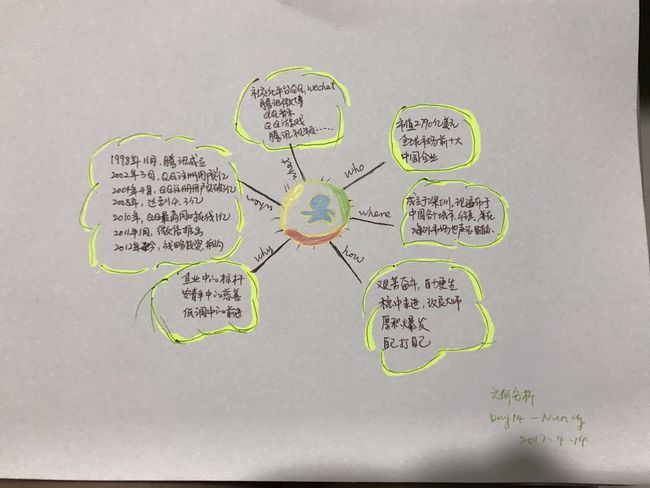 社交化平台QQ, wechat
腾讯微博
QQ音乐
QQ游戏
腾讯视频……
what
who
市值2790亿美元
全球市场前十大
中国企业
where
成立于深圳,现遍布于
中国各大城市
海外市场也
how
艰苦奋斗,自力更生
稳中求进,改良大师
厚积爆发
自己打自己
why
企业中的标杆
低调中的前进
when
1998年11月,腾讯成立
2002年3月,QQ注册用户突破1亿
2004年4月,QQ注册用户突破3亿
2008年,达到4.3亿
2010年,QQ最高同时在线1亿
2011年1月,微信推出
2012年至今,战略投资并购
六何分析
Day14 - Nancy
2017-4-14